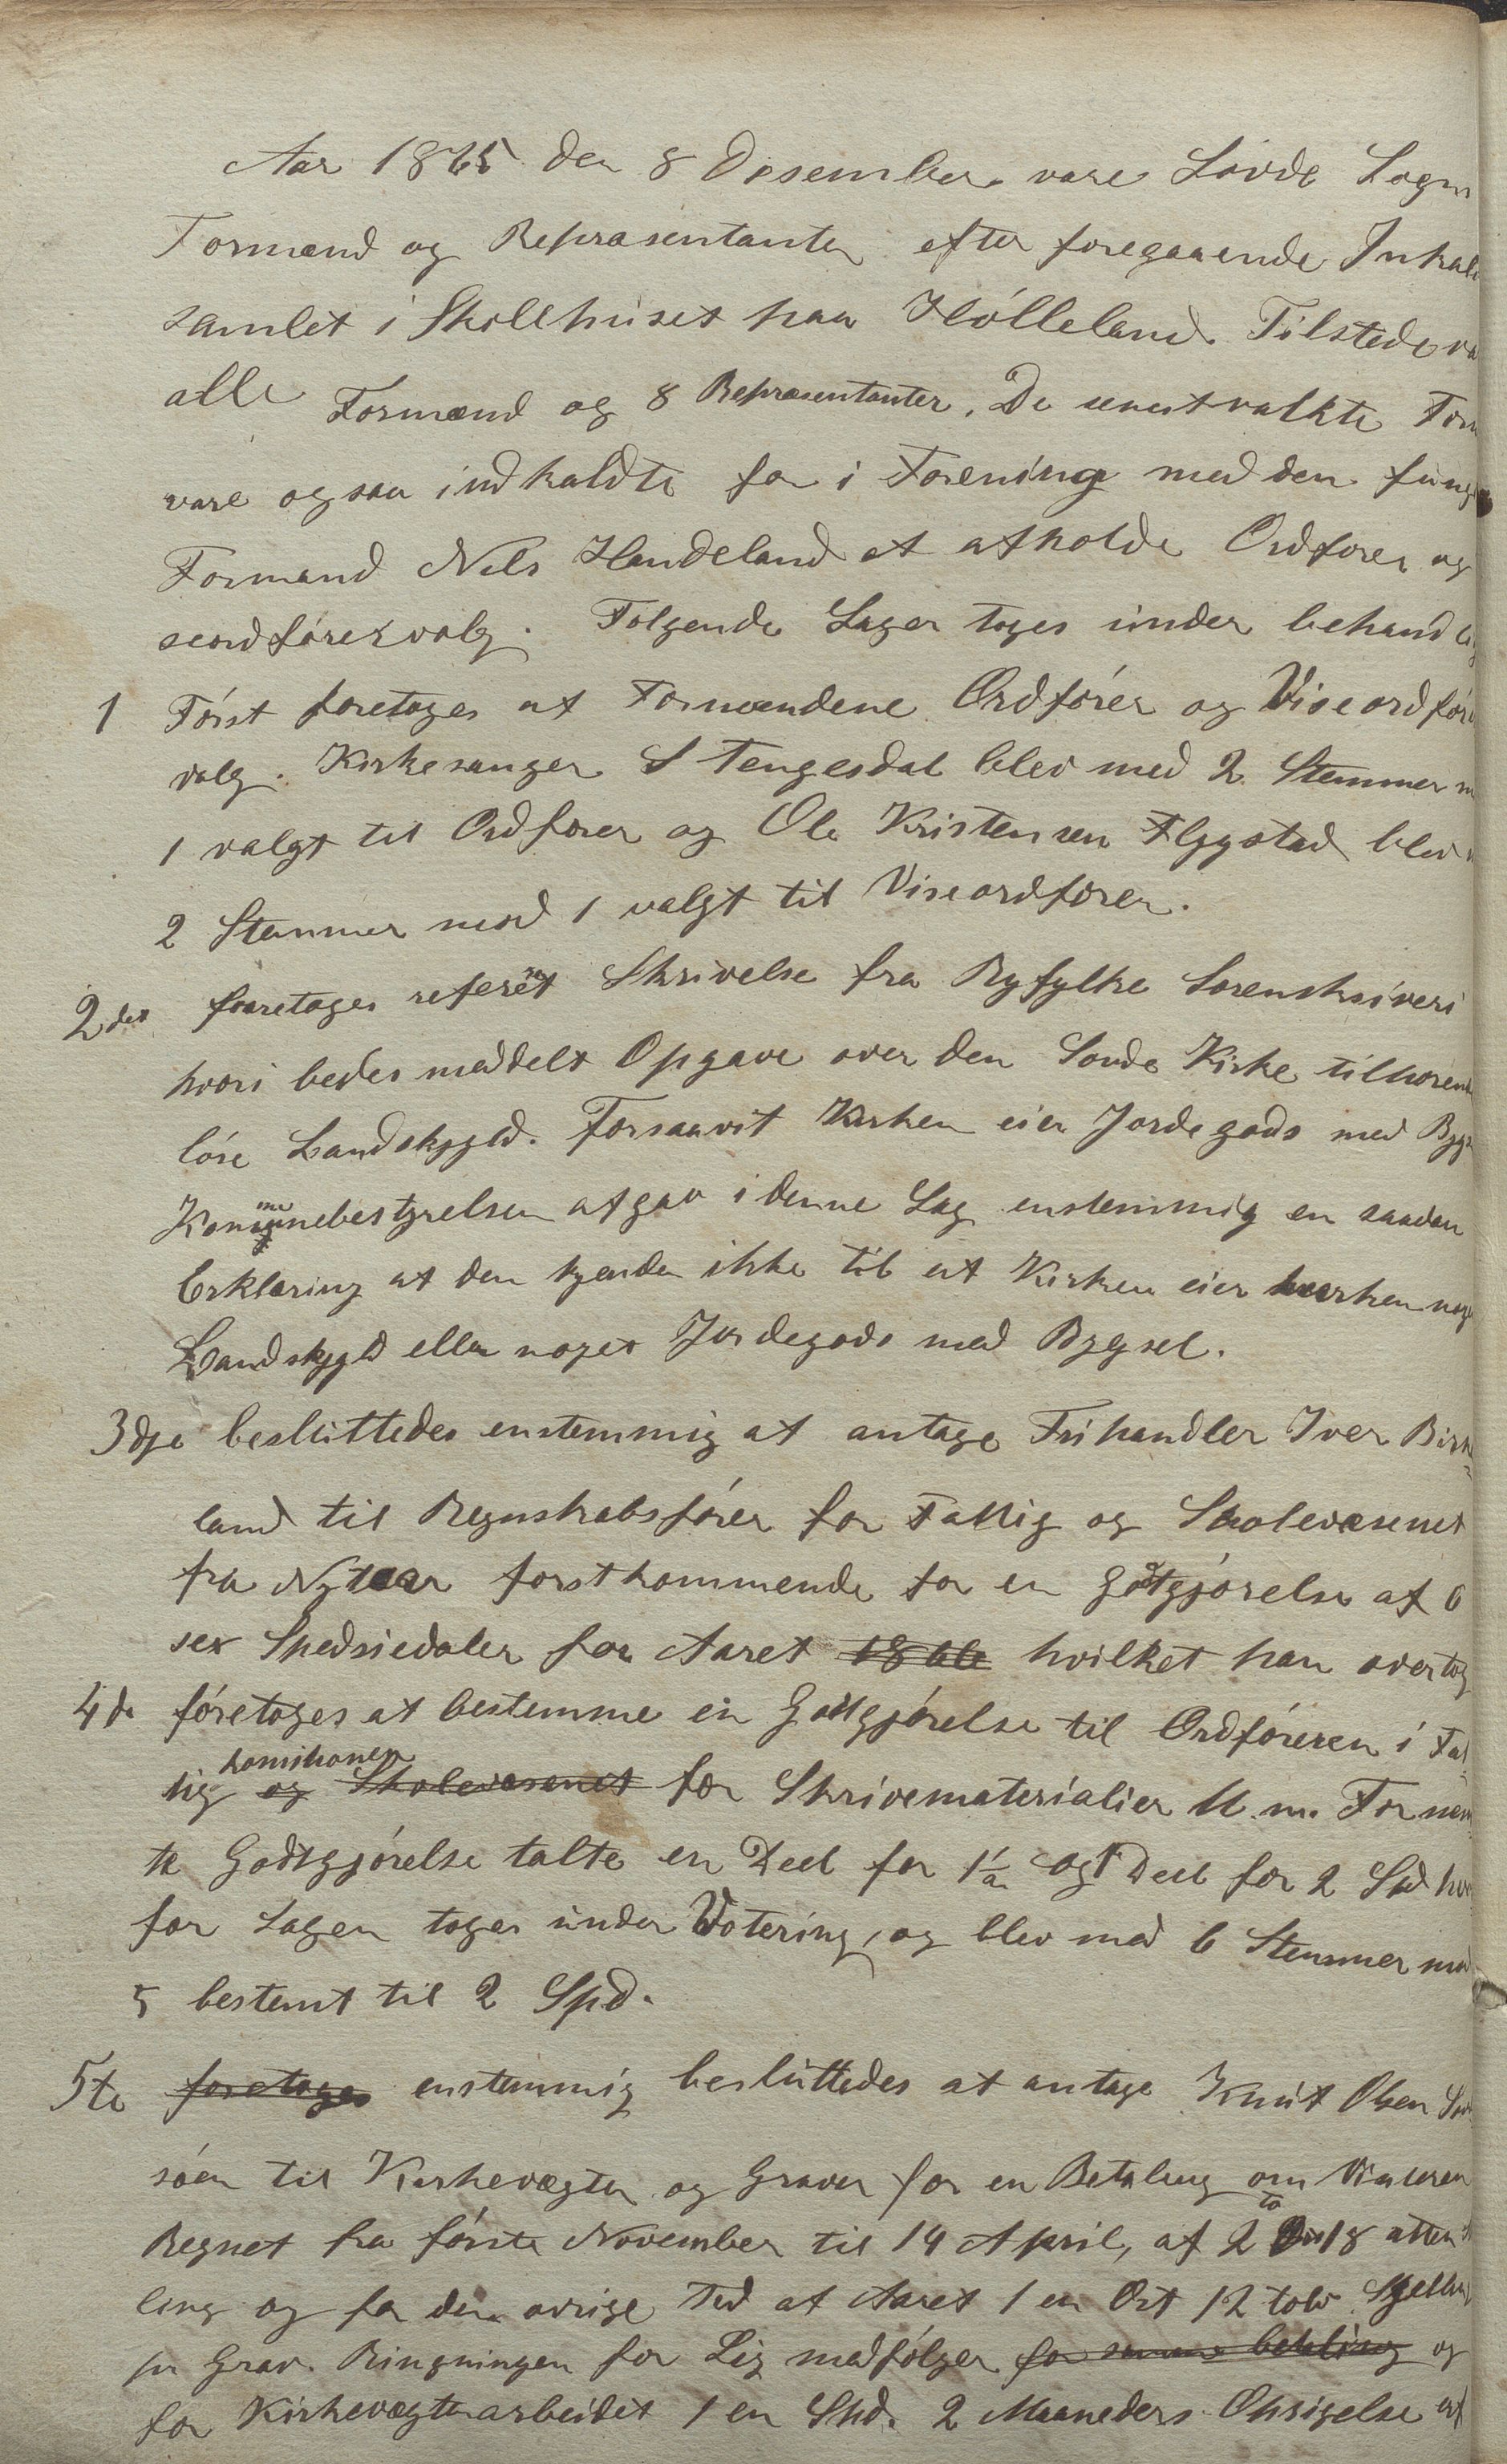 Aar 1865 den 8 Desember vare Sövde Sogns
Formænd og Repræsentanter efter foregaaende Inkald
samlet i Skolehuset paa Hölleland. Tilstede va
alle Formænd og 8 Repræsentanter. De senest valkte Form
vare ogsaa indkaldte for i Forening med den fung
Formand Nels Handeland at afholde Ordforer og
seordförervalg. Folgende Sager toges under behandlig
1 Först foretoges af Formændene Ordförer og Viseordför
valg. Kirkesanger S Tengesdal blev med 2 Stemmer m
1 valgt til Ordforer og Ole Kristensen Flygstad blev m
2 Stemmer mod 1 valgt til Viseordförer.
2det foretoges referet Skrivelse fra Ryfylke Sorenskriveri
hvori bedes meddelt Opgave over den Sovde Kirke tilhorend
löse Landskyld. Forsaavit Kirken eier Jordegods med Bygs
Kommunebestyrelsen afgav i denne Sag enstemmig en saadan
Erklæring at den kjender ikke til at Kirken eier hverken noge
Landskyld eller noget Jordegods med Bygsel.
3dje besluttedes enstemmig at antage Frihandler Iver Birke
land til Regnskabsförer for Fattig og Skolevæsenet
fra Nytaar forstkommende for en Godtgjörelse af 6
sex Spedsiedaler for Aaret 1866 hvilket han overtog
4de foretoges at bestemme en Godtgjörelse til Ordföreren i Fat
komihonen
tig og Skolevæsenet for Skrivematerialier M. m. For nem
te Godtgjörelse talte en Deel for 1½ og 1 Deel for 2 Spd hvo
for Sagen toges under Votering, og blev med 6 Stemmer mod
5 bestemt til 2 Spd.
5te foretoges enstemmig besluttedes at antage Knut Olsen Sov
söen til Kirkevægter og Graver for en Betaling om Vinteren
to
Regnet fra förste November til 14 April, af 2 Ort 18 atten S
ling og for den ovrige Ted af Aaret 1 en Ort 12 tolv Skjelling
pr Grav. Ringningen for Lig medfölger for samme betaling og
for Kirkevægterarbeidet 1 en Spd. 2 Maaneders Opsigelse af